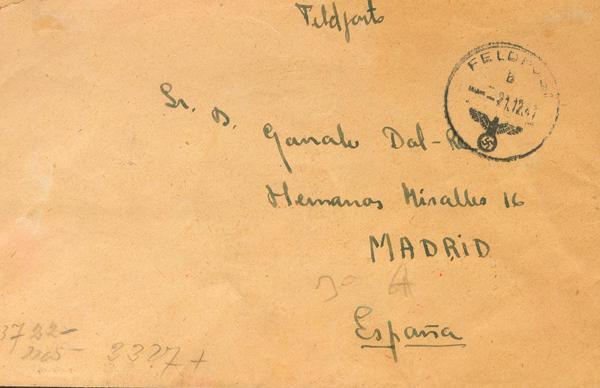 Feldpost
FELDPOST
b
21.12.4
Sr. D.
Gonzalo Dal-Re
Hermanos Miralles 16
MADRID
3º A
España
3722-
3327+